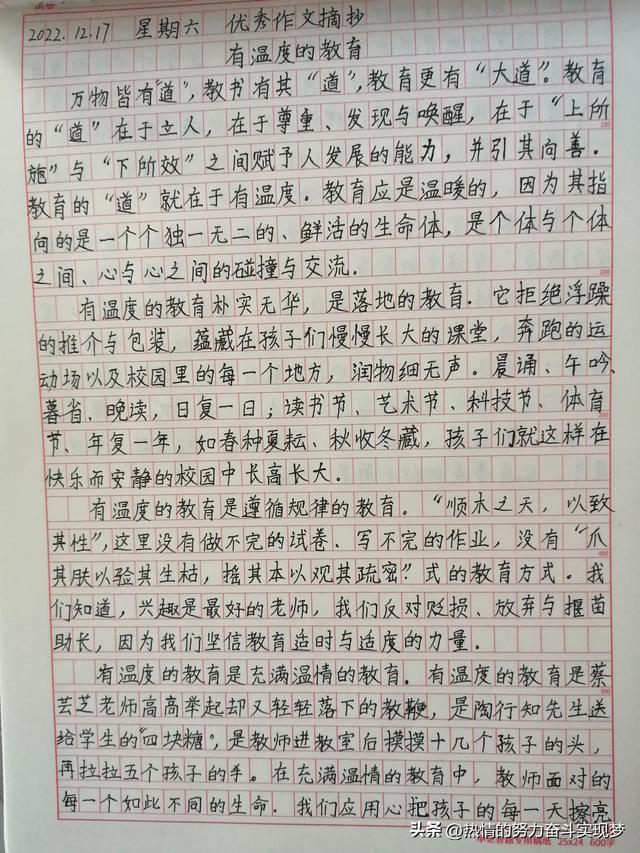 2022.12.17 星期六 优秀作文摘抄
有温度的教育
万物皆有"道",教书有其"道",教育更有"大道"。教育
的"道"在于立人,在于尊重、发现与唤醒,在于"上所
施"与"下所效"之间赋予人发展的能力,并引其向善.
教育的"道"就在于有温度.教育应是温暖的,因为其指
向的是一个个独一无二的、鲜活的生命体,是个体与个体
之间、心与心之间的碰撞与交流.
有温度的教育朴实无华,是落地的教育.它拒绝浮躁
的推介与包装,蕴藏在孩子们慢慢长大的课堂,奔跑的运
动场以及校园里的每一个地方,润物细无声.晨诵、午吟、
暮省、晚读,日复一日;读书节、艺术节、科技节、体育
节、年复一年,如春种夏耘、秋收冬藏,孩子们就这样在
快乐而安静的校园中长高长大.
有温度的教育是遵循规律的教育."顺木之天,以致
其性",这里没有做不完的试卷、写不完的作业,没有"爪
其肤以验其生枯,摇其本以观其疏密"式的教育方式.我
们知道,兴趣是最好的老师,我们反对贬损、放弃与揠苗
助长,因为我们坚信教育适时与适度的力量.
有温度的教育是充满温情的教育.有温度的教育是蔡
芸芝老师高高举起却又轻轻落下的教鞭,是陶行知先生送
给学生的"四块糖",是教师进教室后摸摸十几个孩子的头,
再拉拉五个孩子的手。在充满温情的教育中,教师面对的
每一个如此不同的生命.我们应用心把孩子的每一天擦亮
头条 @热情的努力奋斗实现梦
申论答题专用稿纸 25x24 600字
100
200
400
500